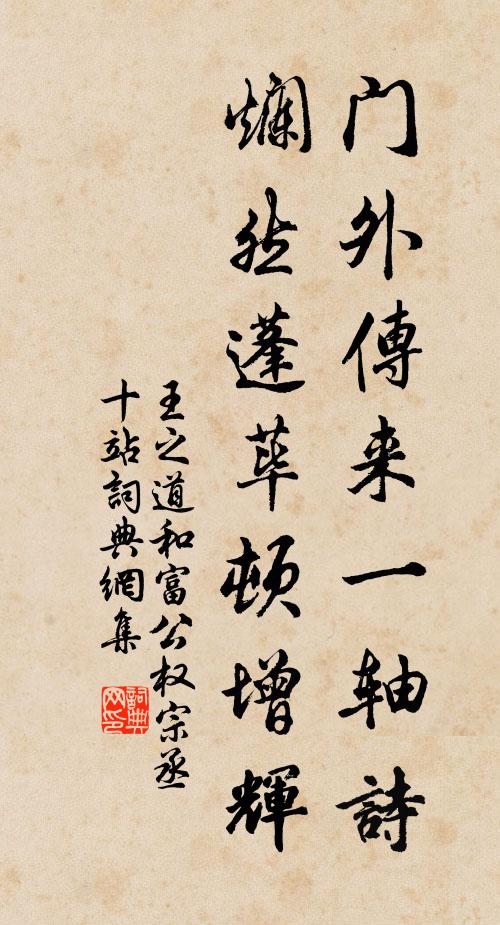 门外傳来一轴詩
斓然蓬荜顿增輝
王之道和富公权宗丞
十站詞典網集
詞典网印